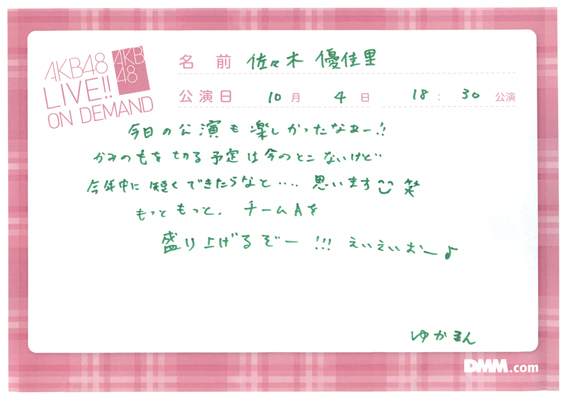 AKB48
LIVE!!
ON DEMAND
AKB
48
名 前 佐々木 優佳里
公演日 10月 4日 18:30 公演
今日の公演も楽しかったなぁー!!
かみのもを切る予定は今のとこないけど…
今年中に短くできたらなと…. 思います 笑
もっともっと、チームAを
盛り上げるぞー!!! えいえいおー♪
ゆかるん
DMM.com